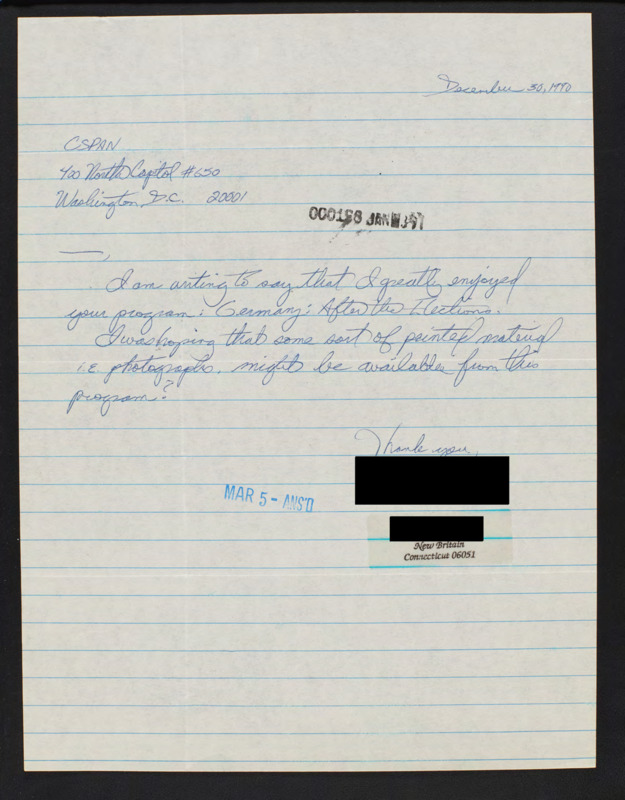 December 30, 1990
CSPAN
400 North Capitol #650
Washington, D.C. 20001
000198 JAN 91
—,
I am writing to say that I greatly enjoyed
your program: Germany: After the Elections.
I was hoping that some sort of printed material
i.e. photographs, might be available from this
program?
Thank you,
MAR 5 - ANS'D
New Britain
Connecticut 06051